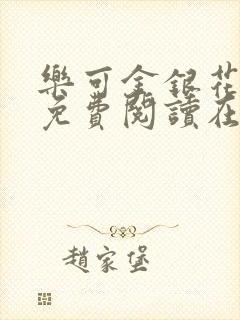 樂可金銀花
免費閱讀在
趙家堡